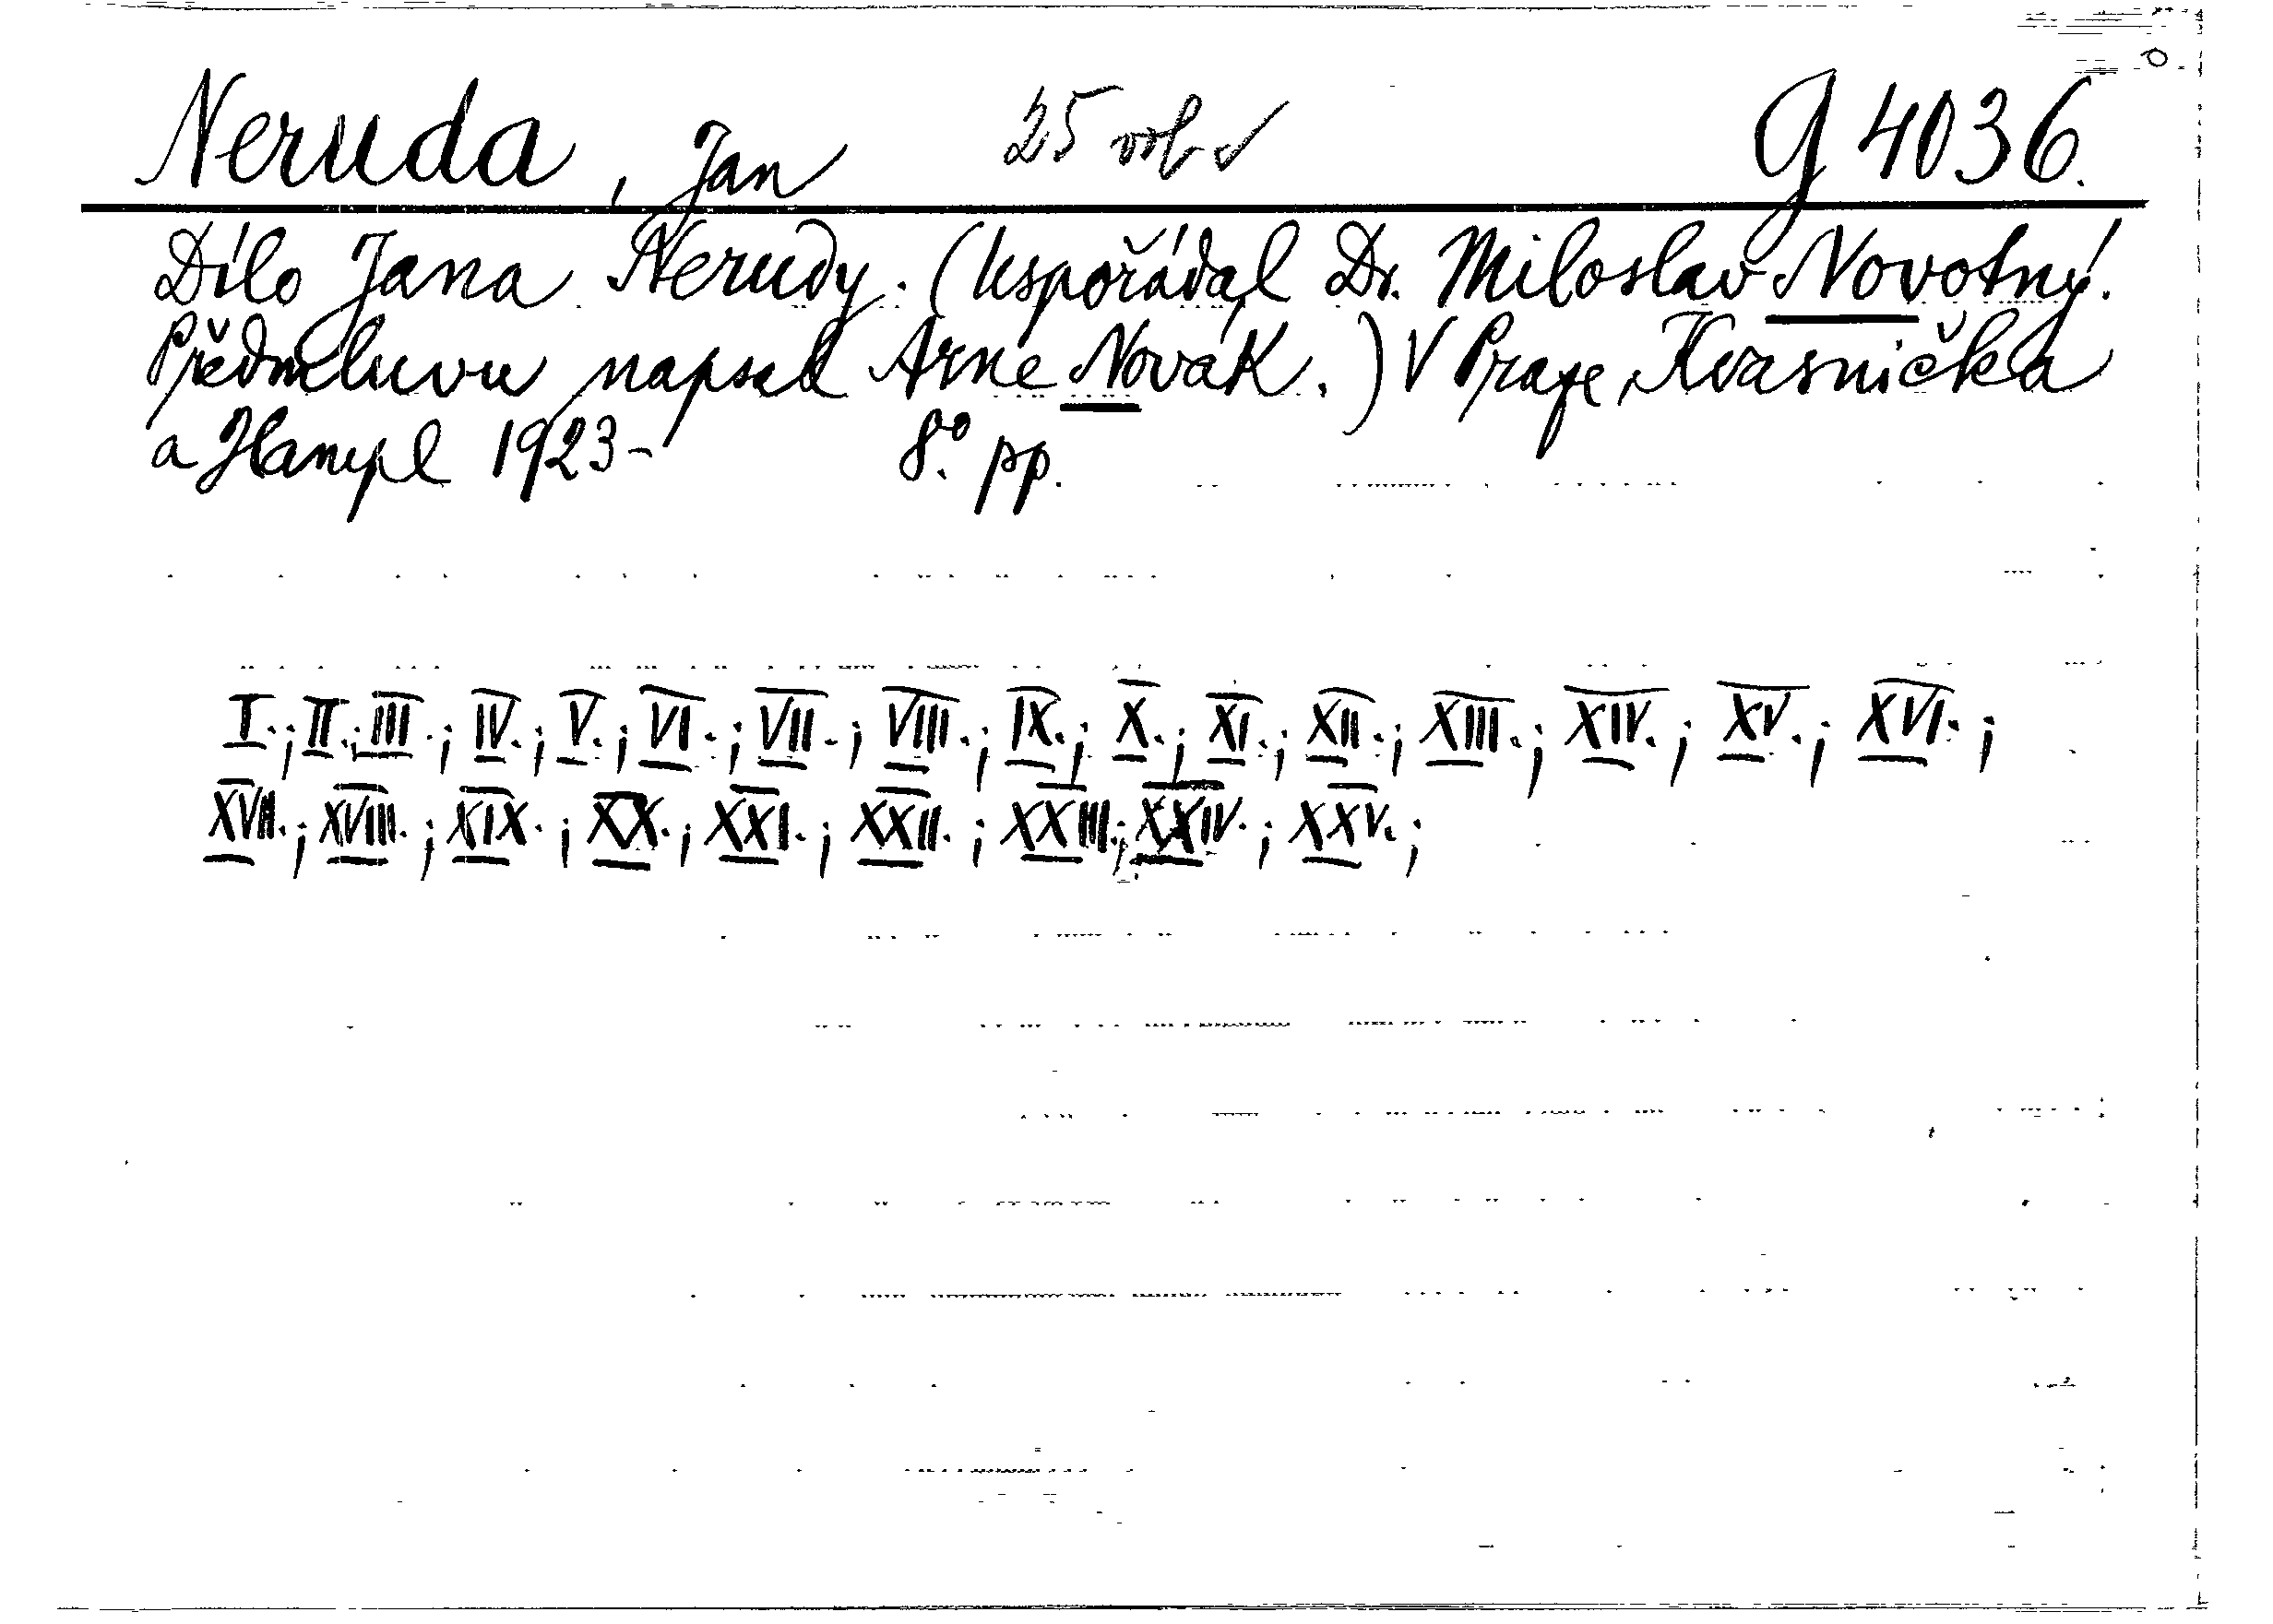 Neruda, Jan 25 vol ✓ G 4036.
Dílo Jana Nerudy. (Uspořádal Dr. Miloslav Novotný.
Předmluvu napsal Arne Novák.) V Praze, Kvasnička
a Hampl 1923- 8.° pp.
I.; II.; III.; IV.; V.; VI.; VII.; VIII.; IX.; X.; XI.; XII.; XIII.; XIV.; XV.; XVI.;
XVII.; XVIII.; XIX.; XX.; XXI.; XXII.; XXIII.; XXIV.; XXV.;